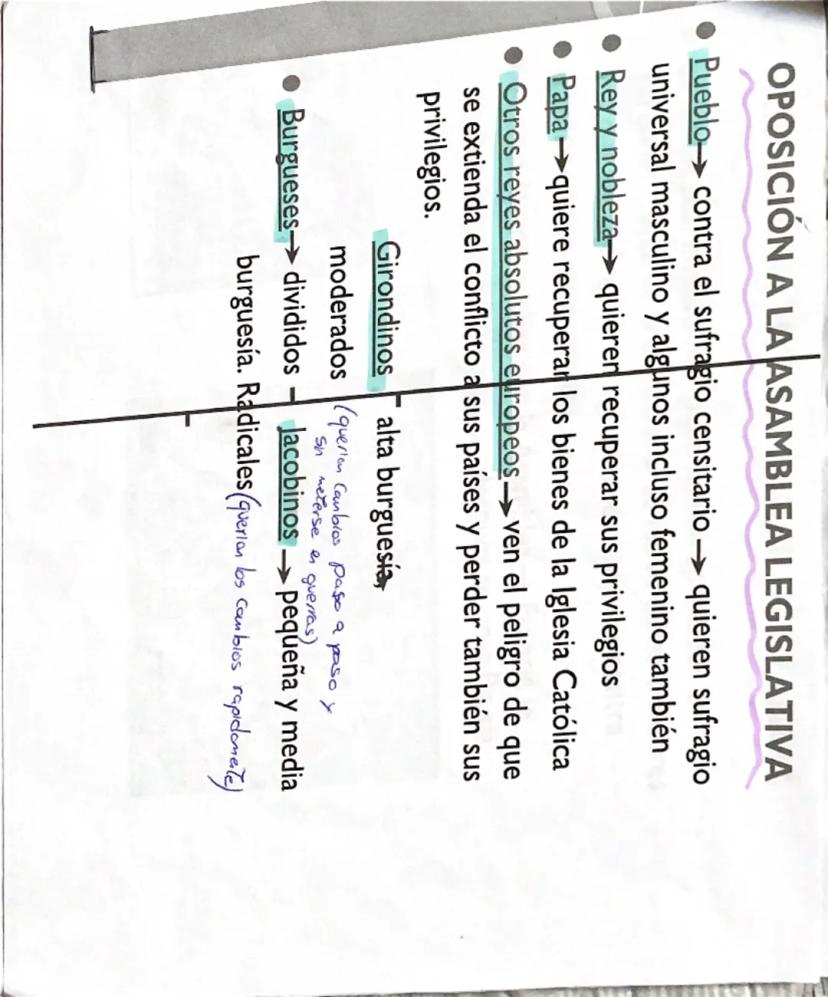 OPOSICIÓN A LA ASAMBLEA LEGISLATIVA
● Pueblo→ contra el sufragio censitario → quieren sufragio
universal masculino y algunos incluso femenino también
● Rey y nobleza→ quieren recuperar sus privilegios
● Papa →quiere recuperar los bienes de la Iglesia Católica
● Otros reyes absolutos europeos→ven el peligro de que
se extienda el conflicto a sus países y perder también sus
privilegios.
Girondinos alta burguesía,
moderados (querian cambios paso a paso y
sin meterse en guerras)
● Burgueses→ divididos Jacobinos → pequeña y media
burguesía. Radicales (querian los cambios rapidamente)